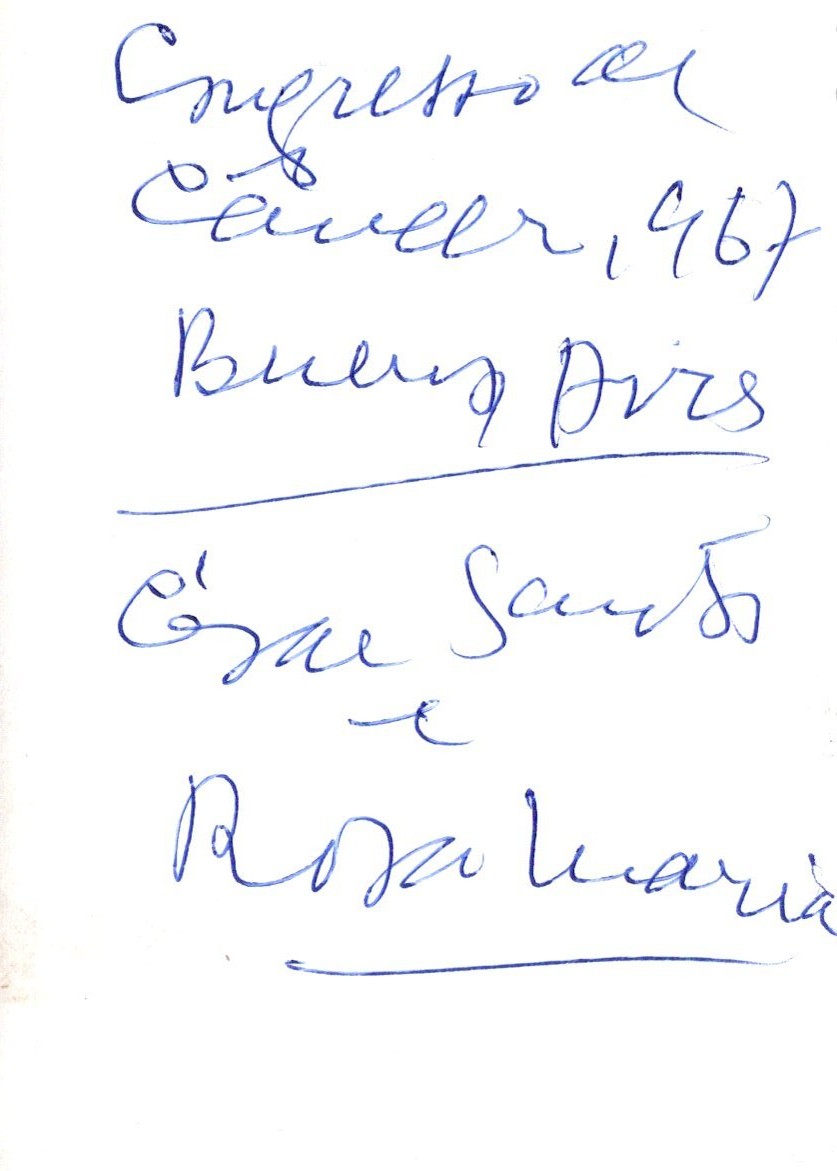 Congresso de
Câncer, 1967
Buenos Aires
César Santos
e
Rosa Maria